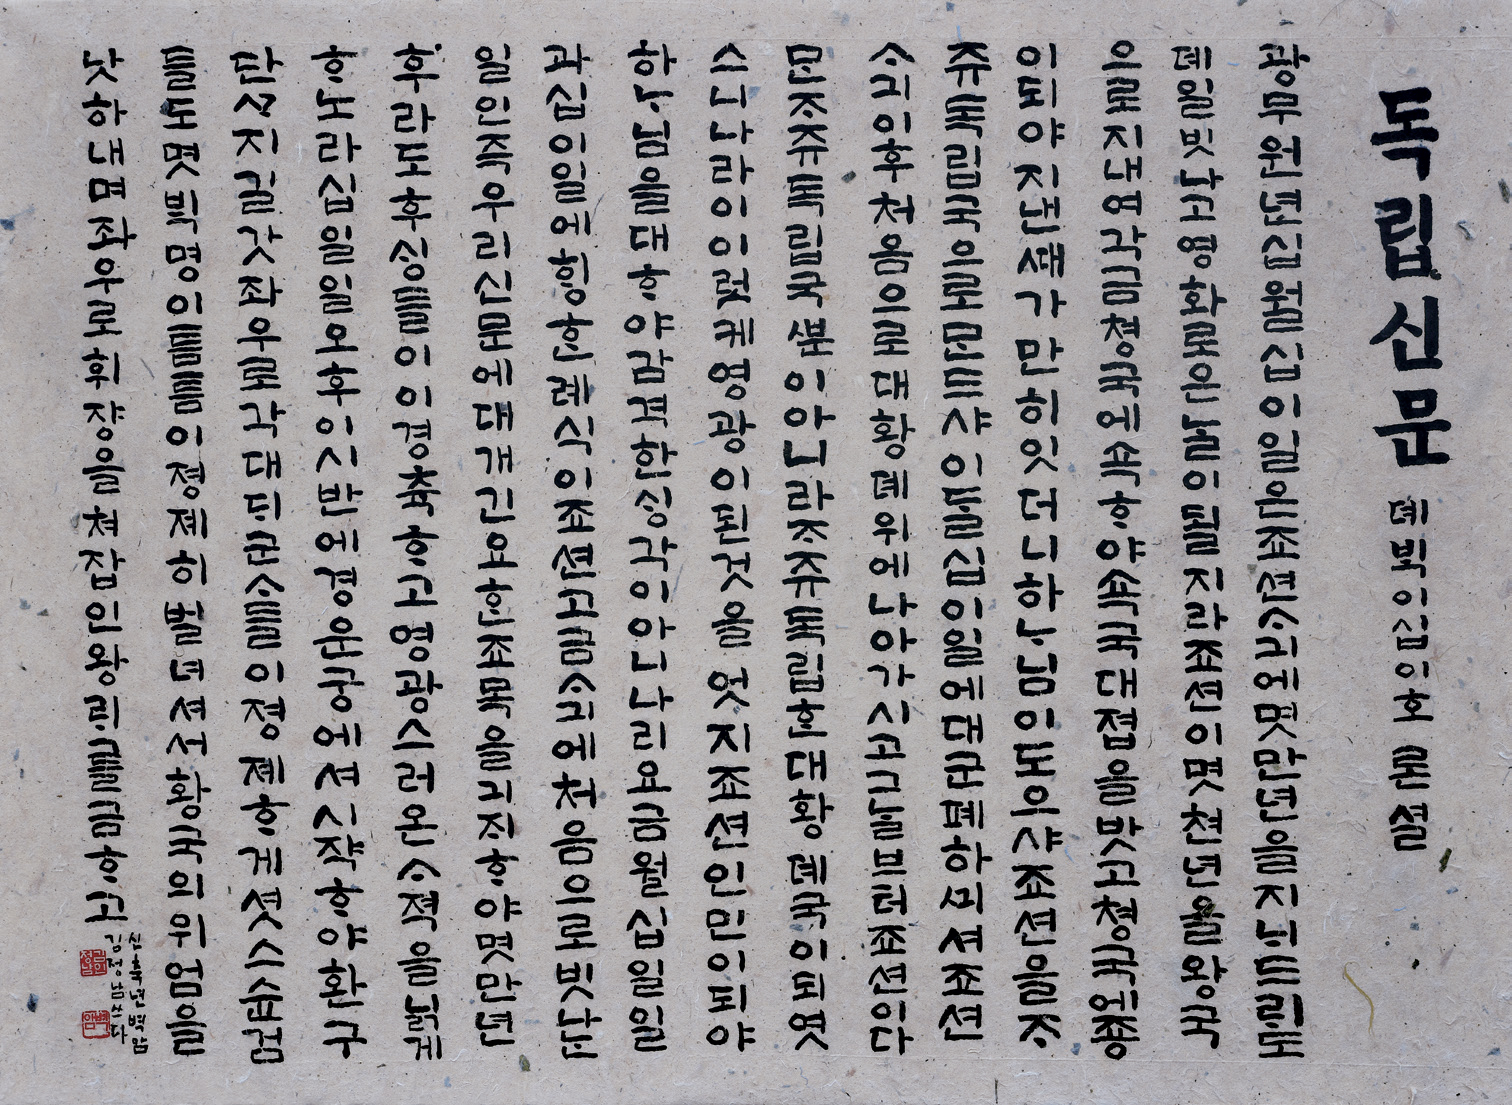 독립신문 뎨ᄇᆡᆨ이십이호 론셜
광무원년십월십이일은죠션ᄉᆞ긔에몃만년을지ᄂᆡ드ᄅᆡ도
뎨일빗나고영화로은놀이될지라죠션이몃쳔년을왕국
으로지내여각금쳥국에쇽ᄒᆞ야쇽국대졉을밧고쳥국에죵
이되야지낸ᄯᅢ가만히잇더니하ᄂᆞ님이도으샤죠션을ᄌᆞ
쥬독립국으로ᄆᆞᆫ드샤이들십이일에대군쥬폐하ᄭᅴ셔죠션
ᄉᆞ긔이후처음으로대황뎨위에나아가시고그늘브터죠션이다
ᄆᆞᆫᄌᆞ쥬독립국ᄲᅮᆫ이아니라ᄌᆞ쥬독립ᄒᆞᆫ대황뎨국이되엿
스니나라이이럿케영광이된것을엇지죠션인민이되야
하ᄂᆞ님을대ᄒᆞ야감격한ᄉᆡᆼ각이아니나리요금월십일일
과십이일에ᄒᆡᆼᄒᆞᆫ례식이죠션고금ᄉᆞ긔에처음으로빗나ᄂᆞᆫ
일인즉우리신문에대개긴요ᄒᆞᆫ죠목을긔ᄌᆡᄒᆞ야몃만년
후라도후ᄉᆡᆼ들이이경츅ᄒᆞ고영광스러온ᄉᆞ젹을닑게
ᄒᆞ노라십일일오후이시반에경운궁에셔시작ᄒᆞ야환구
단ᄭᆞ지길갓좌우로각대ᄃᆡ군ᄉᆞ들이졍졔ᄒᆞ게셧스슌검
들도몃ᄇᆡᆨ명이틈틈이졍졔히벌녀셔서황국의위엄을
낫하내며좌우로휘쟝을쳐잡인왕ᄅᆡ를금ᄒᆞ고
신축년벽암
김정남쓰다